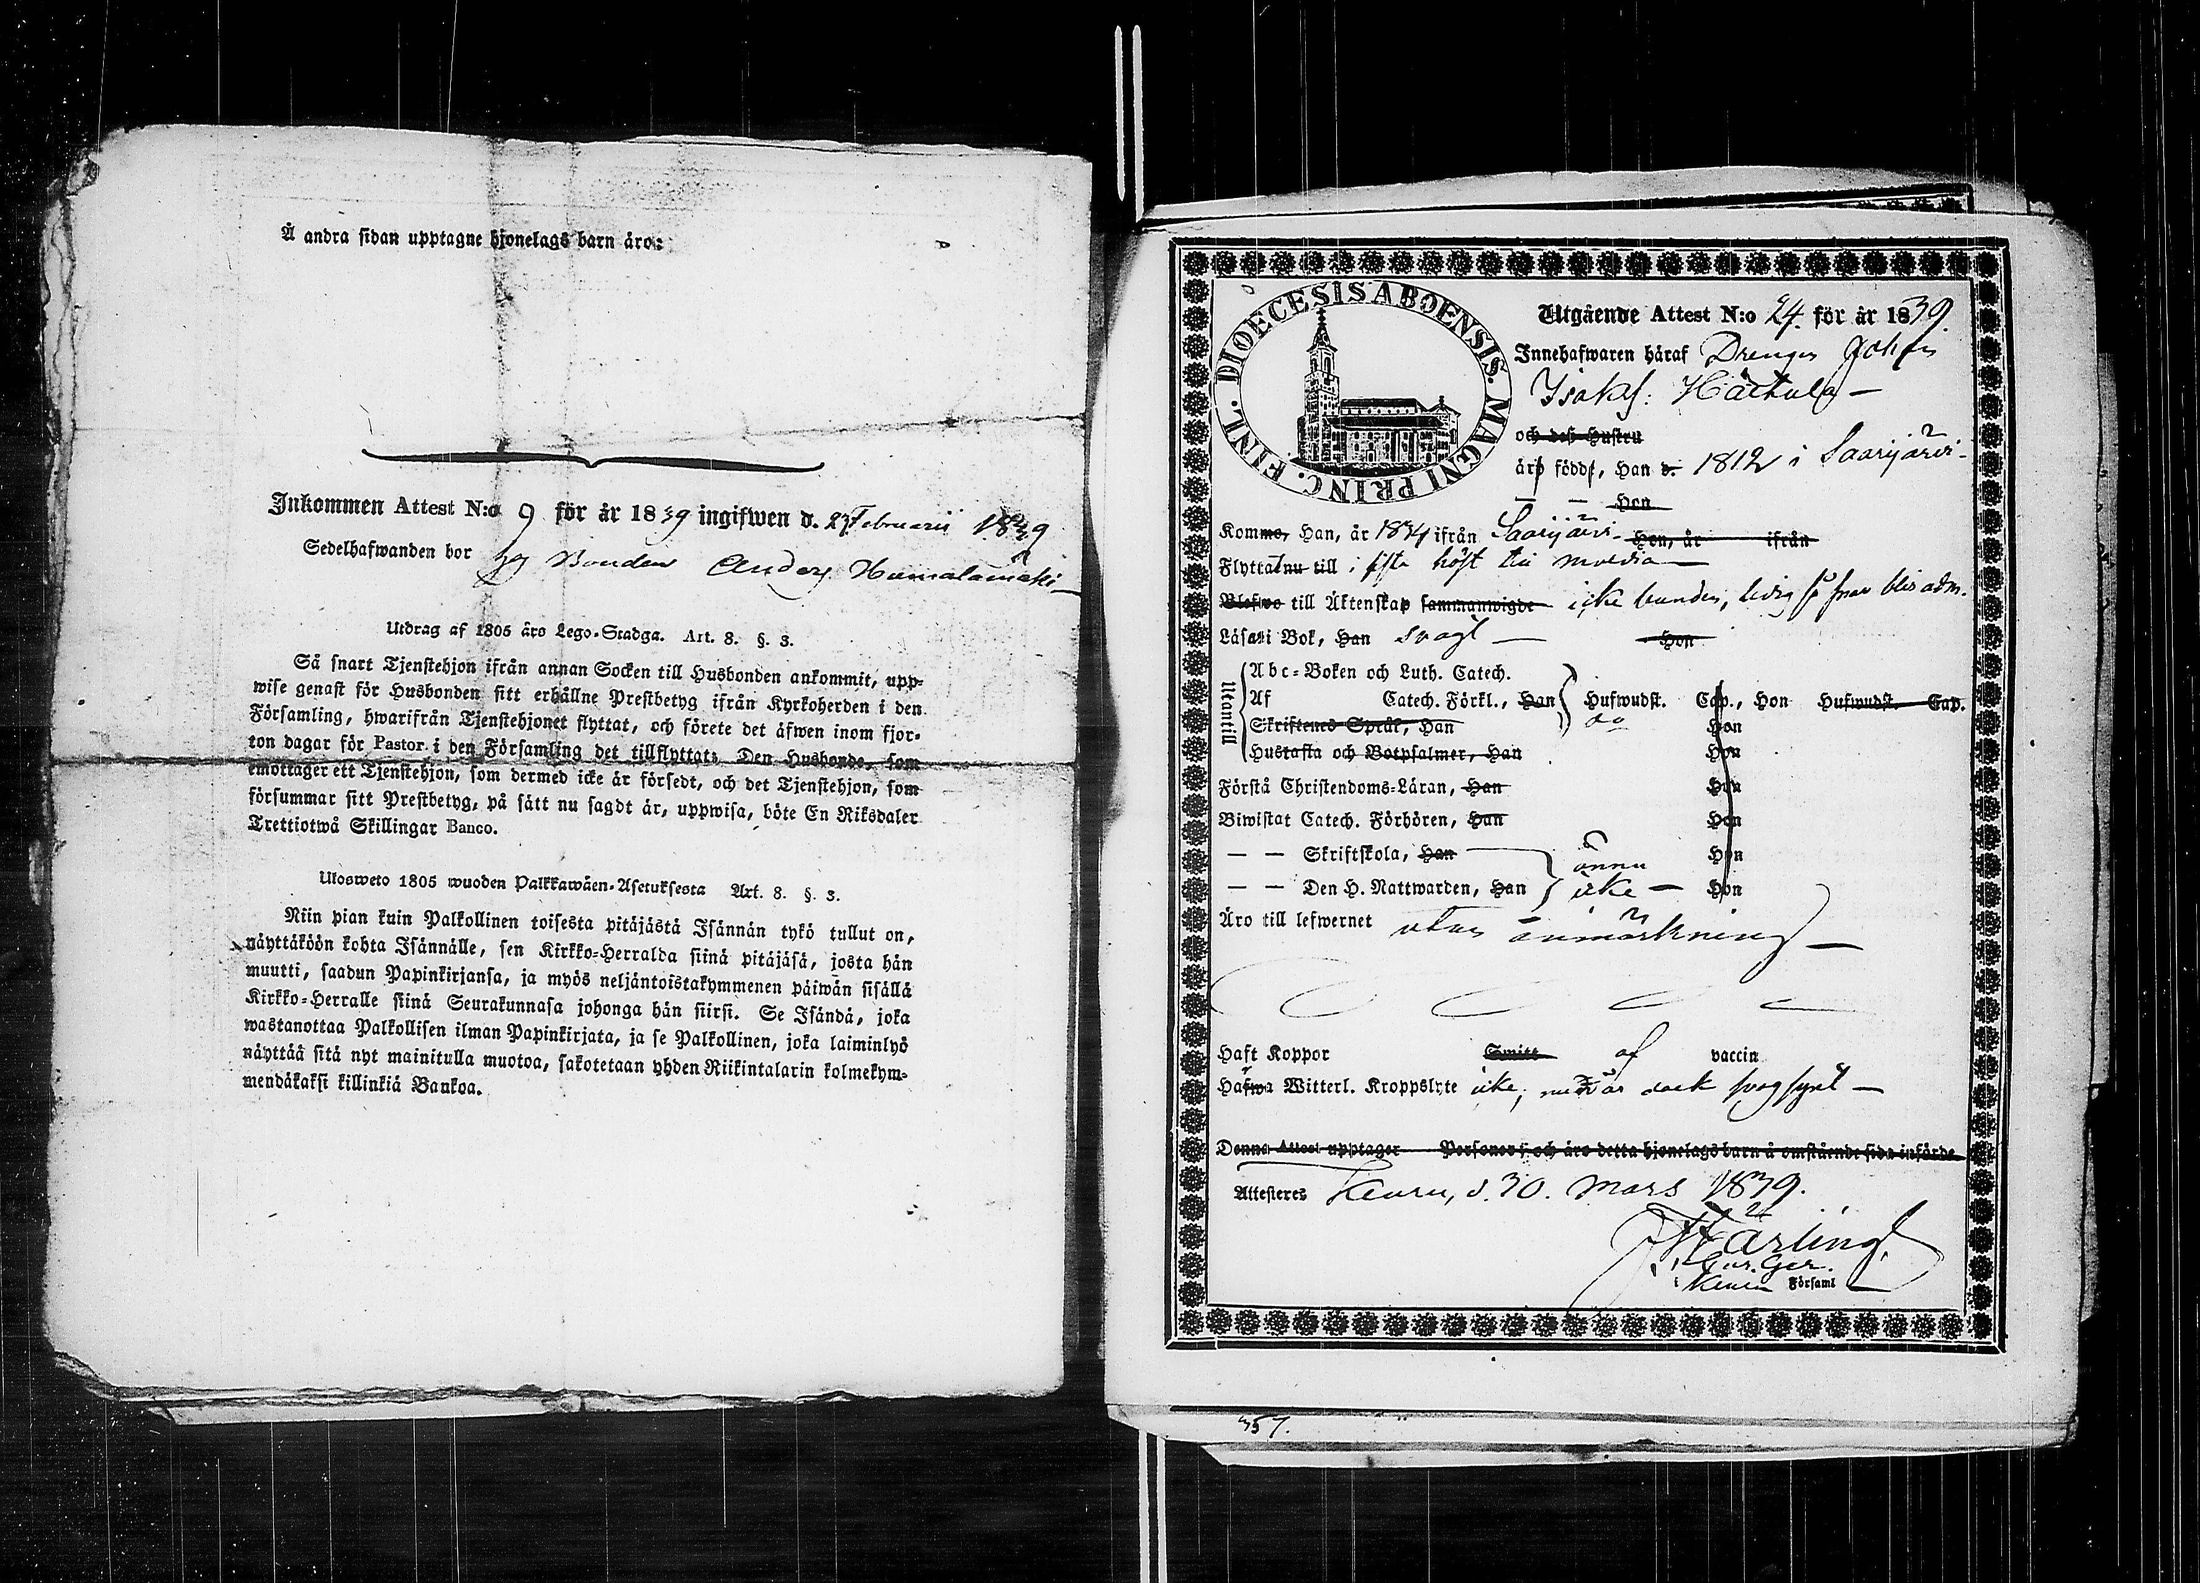 Å andra sidan upptagne hjonelags barn äro:
Inkommen Attest N:o 9 för år 1839 ingifwen d. 27 Februarii 1839
Sedelhafwanden bor hos Bonden Anders Humalamäki
Utdrag af 1805 års Lego-Stadga. Art. 8. §. 3.
Så snart Tjenstehjon ifrån annan Socken till Husbonden ankommit, upp-
wise genast för Husbonden sitt erhållne Prestbetyg ifrån Kyrkoherden i den
Församling, hwarifrån Tjenstehjonet flyttat, och förete det äfwen inom fjor-
ton dagar för Pastor i den Församling det tillflyttat; Den Husbonde, som
emottager ett Tjenstehjon, som dermed icke är försedt, och det Tjenstehjon, som
försummar sitt Prestbetyg, på sätt nu sagdt är, uppwisa, böte En Riksdaler
Trettiotwå Skillingar Banco.
Ulosweto 1805 wuoden Palkkawäen-Asetuksesta Art. 8. §. 3.
Niin pian kuin Palkollinen toisesta pitäjästä Isännän tykö tullut on,
näyttäköön kohta Isännälle, sen Kirkko-Herralda siinä pitäjäsä, josta hän
muutti, saadun Papinkirjansa, ja myös neljäntoistakymmenen päiwän sisällä
Kirkko-Herralle siinä Seurakunnasa johonga hän siirsi. Se Isändä, joka
wastanottaa Palkollisen ilman Papinkirjata, ja se Palkollinen, joka laiminlyö
näyttää sitä nyt mainitulla muotoa, sakotetaan yhden Riikintalarin kolmekym-
mendäkaksi killinkiä Bankoa.
DIOECESIS ABOENSIS. MAGNI PRINC. FINL.
Utgående Attest N:o 24. för år 1839.
Innehafwaren häraf Drengen Johan
Isaks: Häckula
och deß Hustru
äro födde, Han d. 1812 i Saarijärvi
— — Hon
Komme, Han, år 1834 ifrån Saarijärvi Hon, år ifrån
Flyttat nu till i sista höst till Multia
Blefwo till Äktenskap sammanwigde icke bunden, ledig så snar blir adm.
Läsa i Bok, Han svagt Hon
Utantill
Abc-Boken och Luth. Catech.
Af Catech. Förkl., Han Hufwudst. Cap., Hon Hufwudst. Cap.
Skriftenes Språk, Han Hon
Hustafla och Botpsalmer, Han Hon
Förstå Christendoms-Läran, Han Hon
Biwistat Catech. Förhören, Han Hon
— — Skriftskola, Han ännu Hon
— — Den H. Nattwarden, Han icke Hon
Äro till lefwernet utan anmärkning
Haft Koppor Smitt af vaccin
Hafwa Witterl. Kroppslyte icke, men är dock svagsynt
Denna Attest upptager Personer; och äro detta hjonelags barn å omstående sida införde
Attesteres Keuru, d. 30. Mars 1839.
Färling
i Keuru Församl
357.